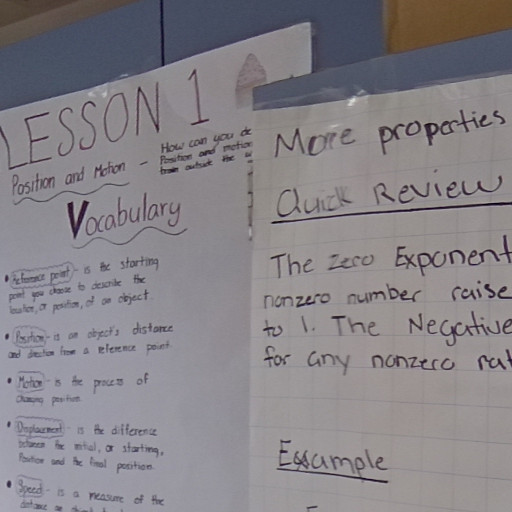 LESSON 1
Position and Motion - How can you de
Position and motion
train outside the w
Vocabulary
• Reference point - is the starting
point you choose to describe the
location, or position, of an object.
• Position - is an object's distance
and direction from a reference point.
• Motion - is the process of
changing position.
• Displacement - is the difference
between the initial, or starting,
Position and the final position.
• Speed - is a measure of the
distance an object
More properties
Quick Review
The Zero Exponent
nonzero number raise
to 1. The Negative
for any nonzero rat
Example